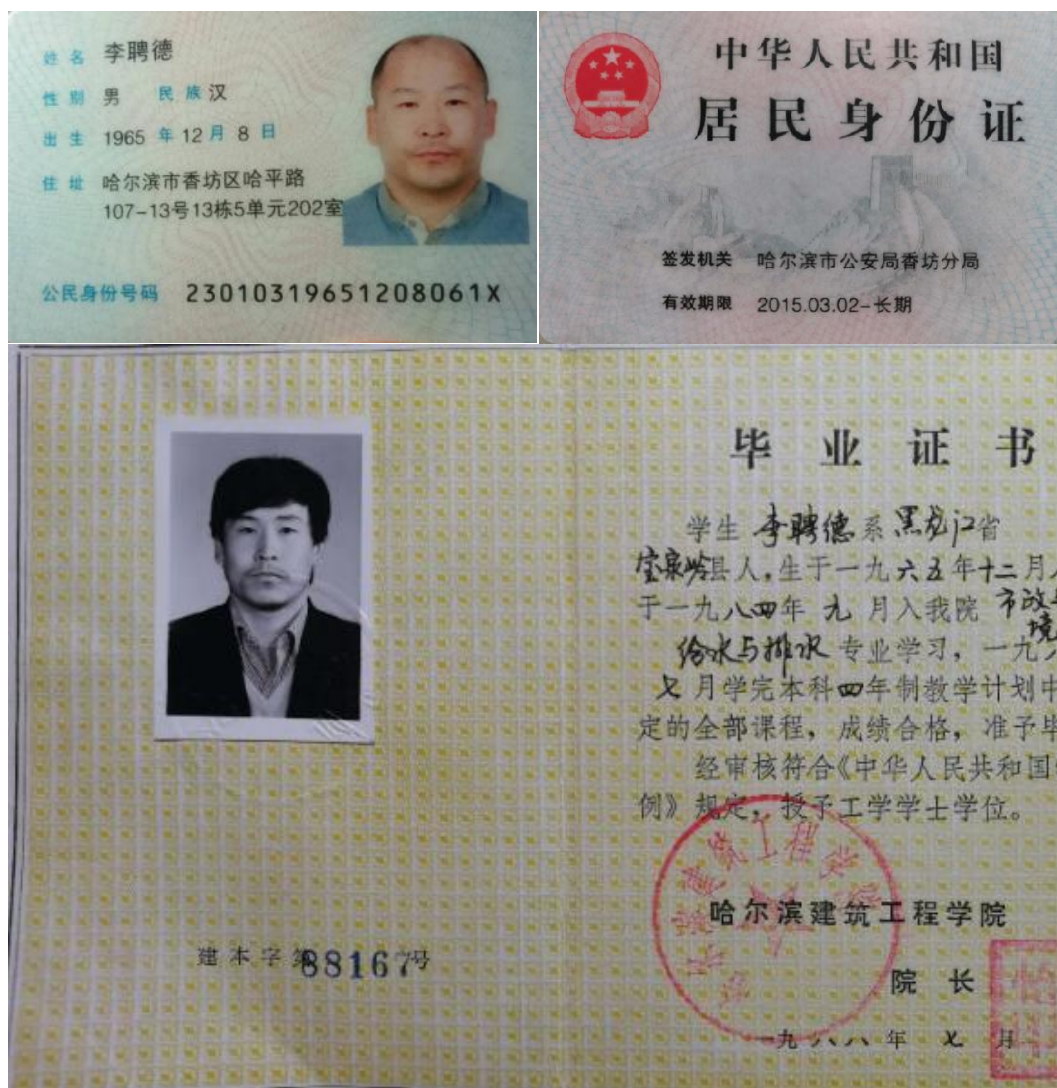 姓名 李聘德
性别 男 民族 汉
出生 1965 年 12 月 8 日
住址 哈尔滨市香坊区哈平路
107-13号13栋5单元202室
公民身份号码 23010319651208061X
中华人民共和国
居民身份证
签发机关 哈尔滨市公安局香坊分局
有效期限 2015.03.02-长期
毕业证书
学生 李聘德 系 黑龙江省
宝泉岭县人,生于一九六五年十二月
于一九八四年 九 月入我院 市政
境
给水与排水 专业学习,一九
七 月学完本科四年制教学计划中
定的全部课程,成绩合格,准予毕
经审核符合《中华人民共和国
例》规定,授予工学学士学位。
哈尔滨建筑工程学院
建本字第88167号
院 长
一九八八年 七 月